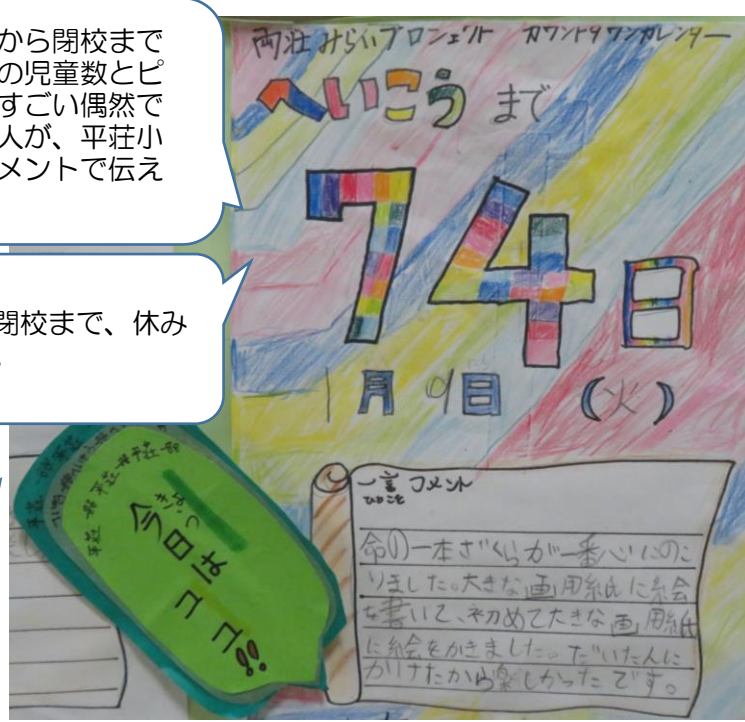 から閉校まで
の児童数とピ
すごい偶然で
人が、平荘小
メントで伝え
閉校まで、休み
両荘みらいプロジェクト カウントダウンカレンダー
へいこう まで
74日
1月9日 (火)
一言コメント
ひとこと
命の一本ざくらが一番心にのこ
りました。大きな画用紙に絵
を書いて、初めて大きな画用紙
に絵をかきました。だいたんに
かけたから楽しかったです。
きょう
今日は
ココ!!